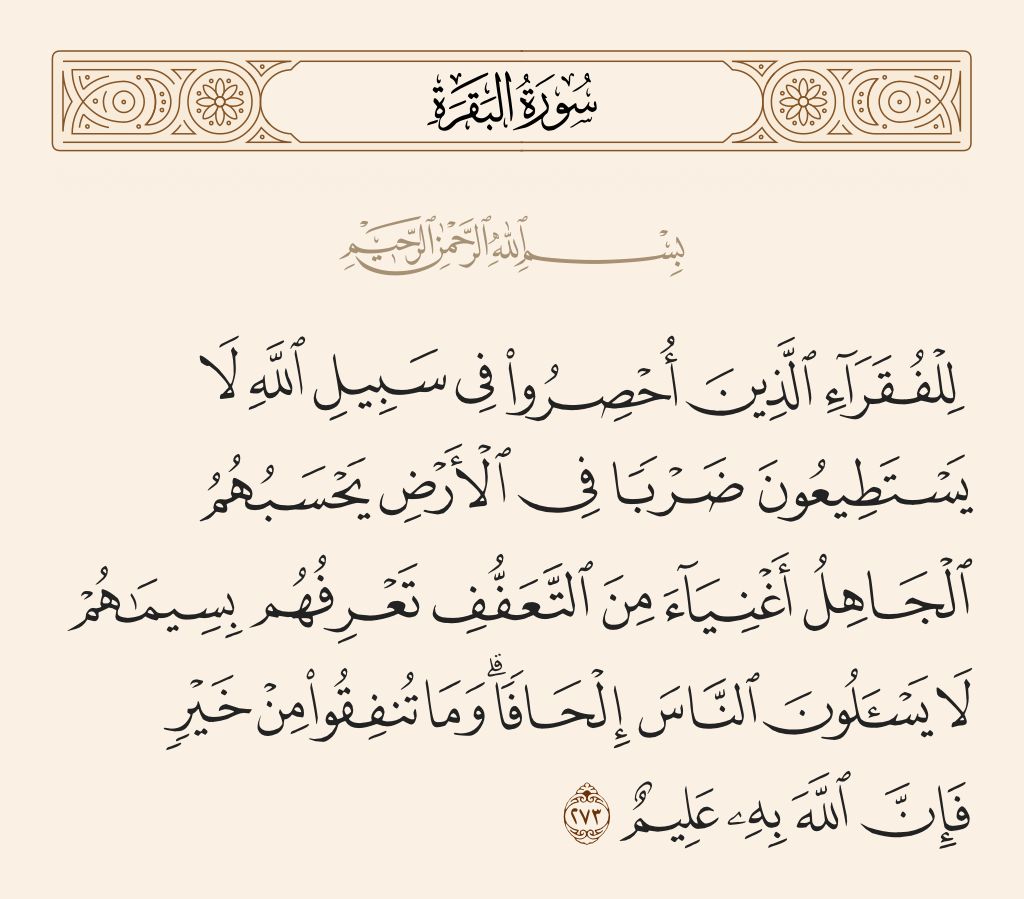 سُورَةُ البَقَرَةِ
بِسْمِ ٱللَّهِ ٱلرَّحْمَٰنِ ٱلرَّحِيمِ
لِلْفُقَرَآءِ ٱلَّذِينَ أُحْصِرُوا۟ فِى سَبِيلِ ٱللَّهِ لَا
يَسْتَطِيعُونَ ضَرْبًا فِى ٱلْأَرْضِ يَحْسَبُهُمُ
ٱلْجَاهِلُ أَغْنِيَآءَ مِنَ ٱلتَّعَفُّفِ تَعْرِفُهُم بِسِيمَٰهُمْ
لَا يَسْـَٔلُونَ ٱلنَّاسَ إِلْحَافًا ۗ وَمَا تُنفِقُوا۟ مِنْ خَيْرٍ
فَإِنَّ ٱللَّهَ بِهِۦ عَلِيمٌ ٢٧٣